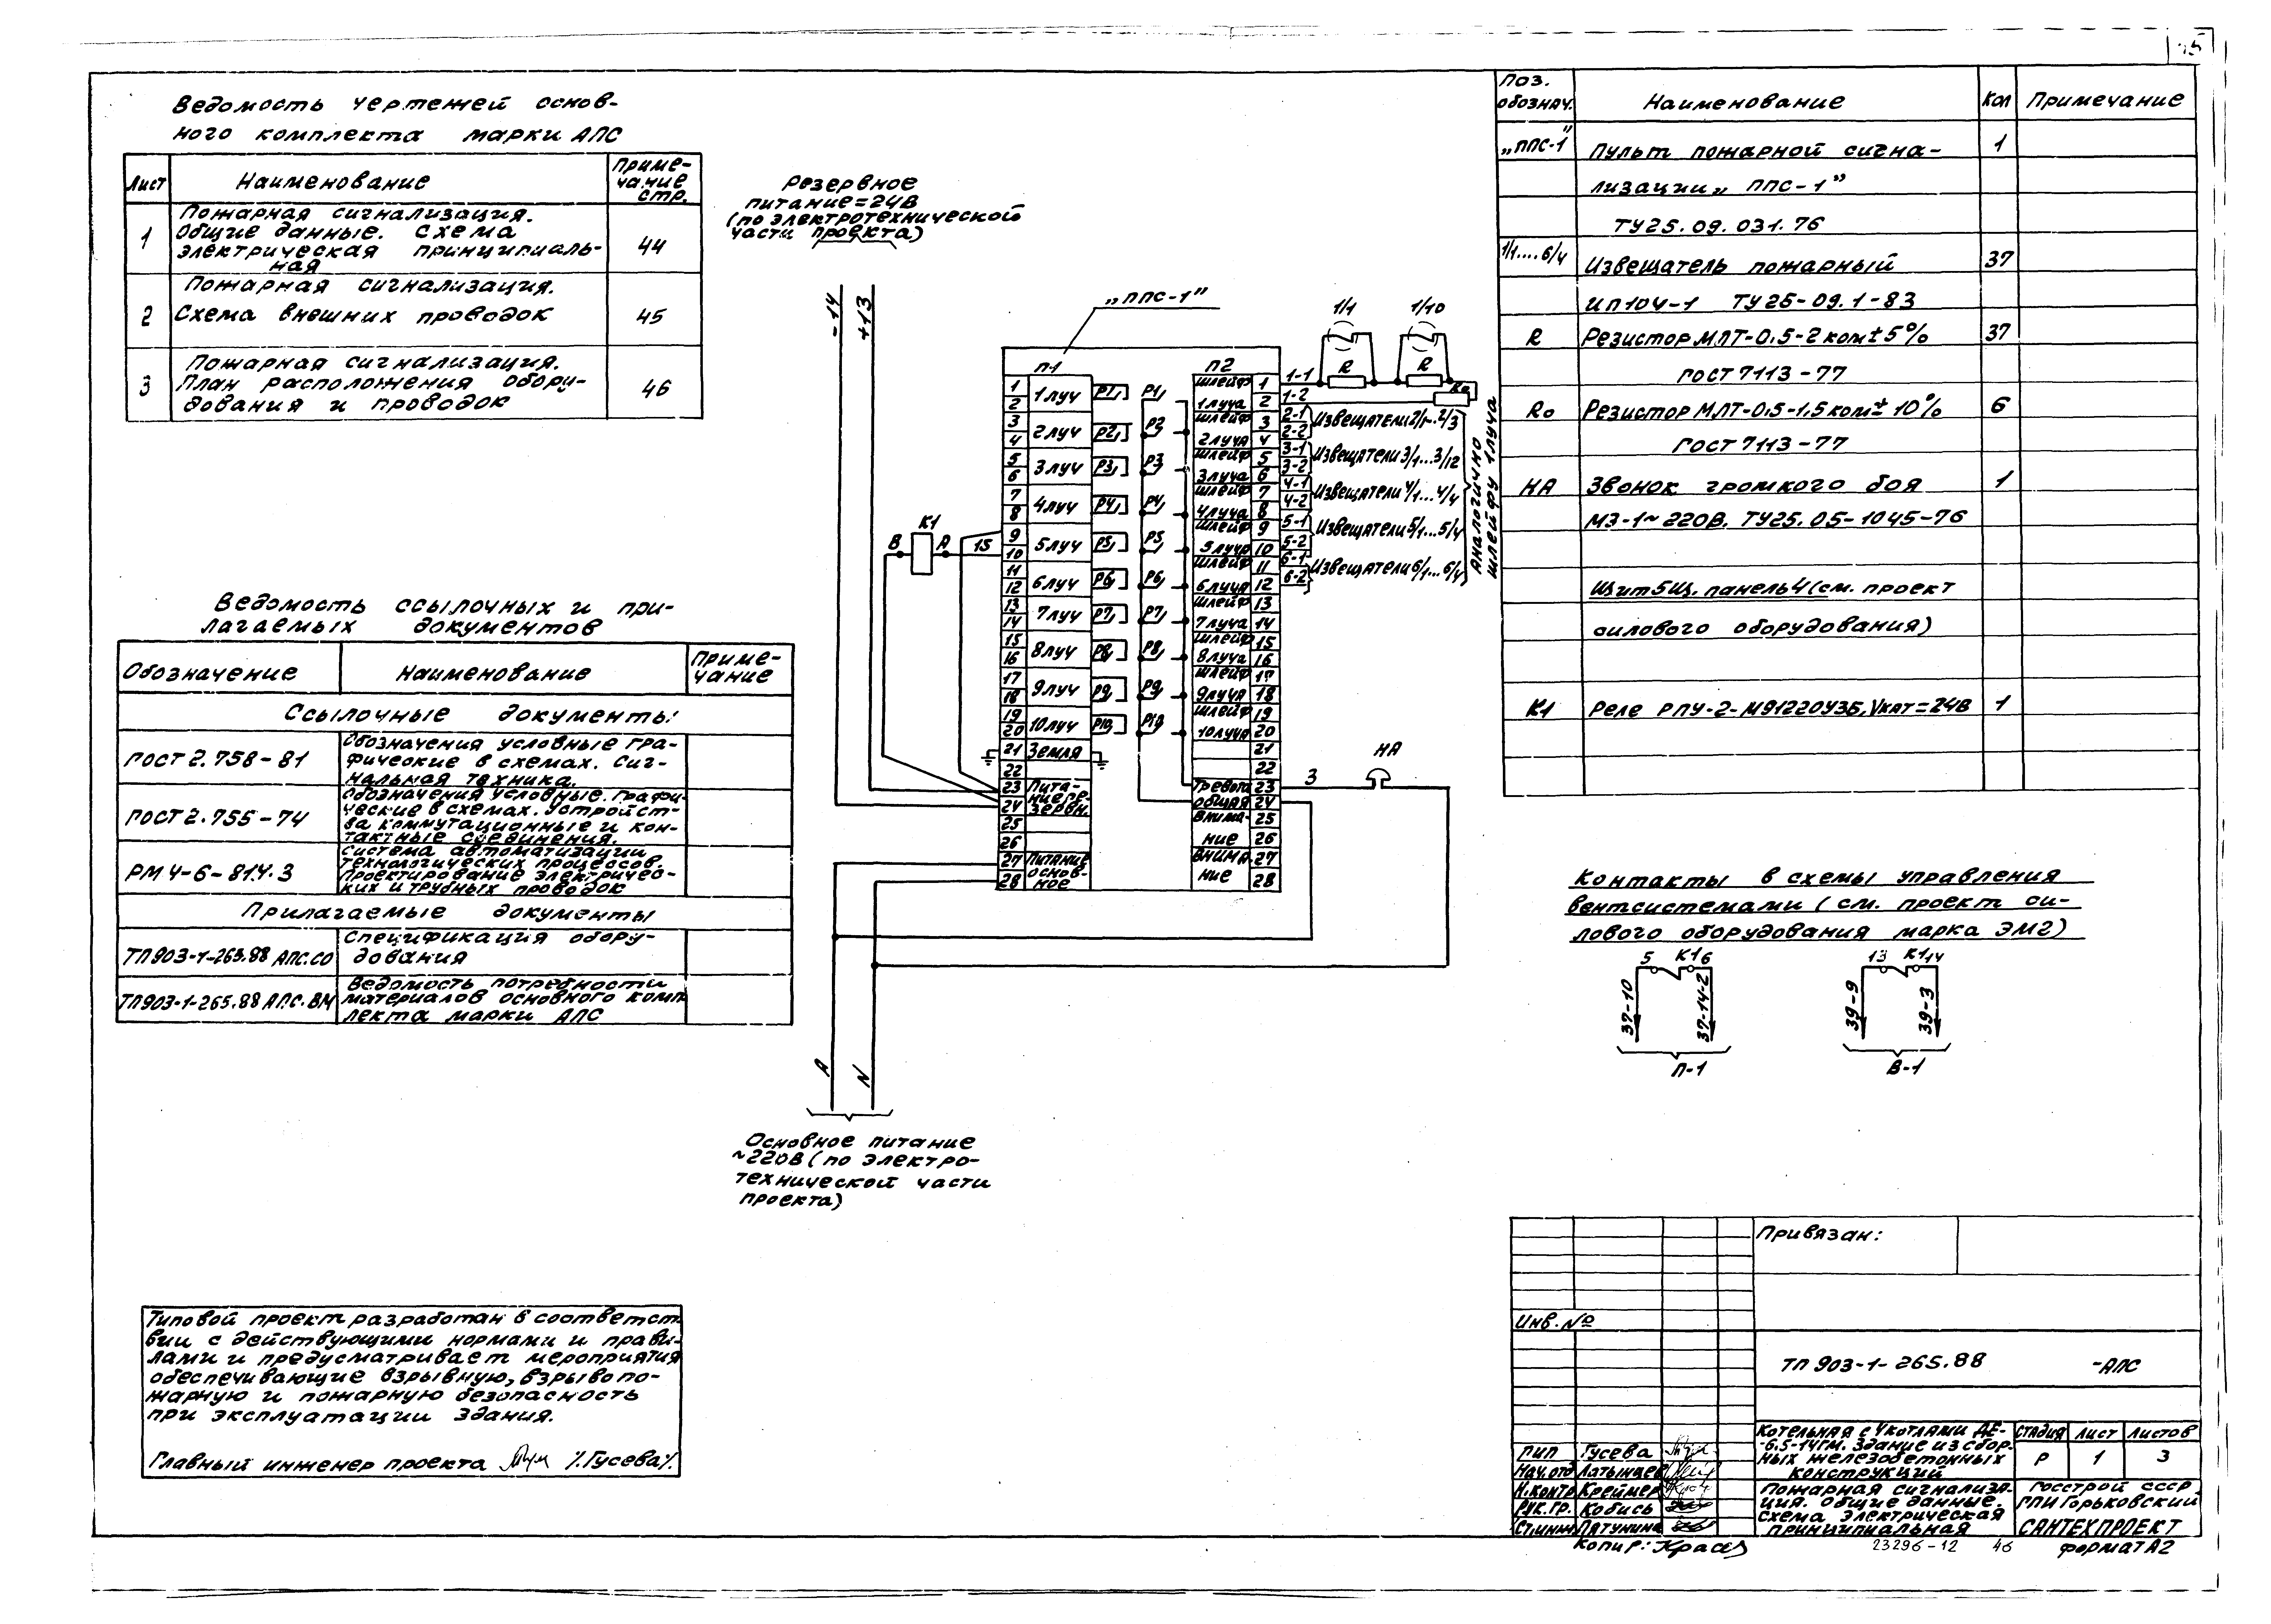 Ведомость чертежей основ-
ного комплекта марки АПС
Лист
Наименование
Приме-
чание
стр.
1
Пожарная сигнализация.
Общие данные. Схема
электрическая принципиаль-
ная
44
2
Пожарная сигнализация.
Схема внешних проводок
45
3
Пожарная сигнализация.
План расположения обору-
дования и проводок
46
Ведомость ссылочных и при-
лагаемых документов
Обозначение
Наименование
Приме-
чание
Ссылочные документы:
ГОСТ 2.758-81
Обозначения условные гра-
фические в схемах. Сиг-
нальная техника.
ГОСТ 2.755-74
Обозначения условные графи-
ческие в схемах. Устройст-
ва коммутационные и кон-
тактные соединения.
РМ4-6-81Ч.3
Система автоматизации
технологических процессов.
Проектирование электричес-
ких и трубных проводок
Прилагаемые документы
ТП903-1-265.88 АПС.СО
Спецификация обору-
дования
ТП903-1-265.88 АПС.ВМ
Ведомость потребности
материалов основного комп
лекта марки АПС
Типовой проект разработан в соответст
вии с действующими нормами и прави-
лами и предусматривает мероприятия
обеспечивающие взрывную, взрывопо-
жарную и пожарную безопасность
при эксплуатации здания.
Главный инженер проекта /Гусева/
Резервное
питание=24В
(по электротехнической
части проекта)
-14
+13
„ППС-1”
П1
П2
1 2 1луч Р1
3 4 2луч Р2
5 6 3луч Р3
7 8 4луч Р4
9 10 5луч Р5
11 12 6луч Р6
13 14 7луч Р7
15 16 8луч Р8
17 18 9луч Р9
19 20 10луч Р10
21 Земля
22
23 Пита-
24 ние ре-
зервн.
25
26
27 Питание
28 основ-
ное
Р1
Р2
Р3
Р4
Р5
Р6
Р7
Р8
Р9
Р10
шлейф 1
1луча 2
шлейф 3
2луча 4
шлейф 5
3луча 6
шлейф 7
4луча 8
шлейф 9
5луча 10
шлейф 11
6луча 12
шлейф 13
7луча 14
шлейф 15
8луча 16
шлейф 17
9луча 18
шлейф 19
10луча 20
21
22
Тревога 23
общая 24
Внима- 25
ние 26
Внима- 27
ние 28
К1
В
А
15
1/1
1/10
R
R
Rо
1-1
1-2
2-1
2-2
Извещатели 2/1...2/3
3-1
3-2
Извещатели 3/1...3/12
4-1
4-2
Извещатели 4/1...4/4
5-1
5-2
Извещатели 5/1...5/4
6-1
6-2
Извещатели 6/1...6/4
Аналогично
шлейфу 1луча
НА
3
А
N
Основное питание
~220В (по электро-
технической части
проекта)
Поз.
обознач.
Наименование
Кол
Примечание
„ППС-1”
Пульт пожарной сигна-
1
лизации „ППС-1”
ТУ25.09.031.76
1/1....6/4
Извещатель пожарный
37
ИП104-1 ТУ25-09.1-83
R
Резистор МЛТ-0,5-2 ком±5%
37
ГОСТ 7113-77
Rо
Резистор МЛТ-0,5-1,5 ком±10%
6
ГОСТ 7113-77
НА
Звонок громкого боя
1
МЗ-1~220В. ТУ25.05-1045-76
Щит 5Щ, панель 4 (см. проект
силового оборудования)
К1
Реле РПУ-2-М91220У3Б, Vкат=24В
1
Контакты в схемы управления
вентсистемами (см. проект си-
лового оборудования марка ЭМ2)
5 К1 6
37-10
37-14-2
П-1
13 К1 14
39-9
39-3
В-1
Привязан:
Инв.№
ТП 903-1-265.88 -АПС
Котельная с 4 котлами ДЕ-
-6.5-14ГМ. Здание из сбор-
ных железобетонных
конструкций
Стадия
Лист
Листов
Р
1
3
Пожарная сигнализа-
ция. Общие данные.
Схема электрическая
принципиальная
Госстрой СССР
ГПИ Горьковский
САНТЕХПРОЕКТ
ГИП Гусева
Нач.отд Латынцев
Н.контр Креймер
Рук.гр. Кобись
Ст.инж Пятунина
Копир:
23296-12 46
формат А2